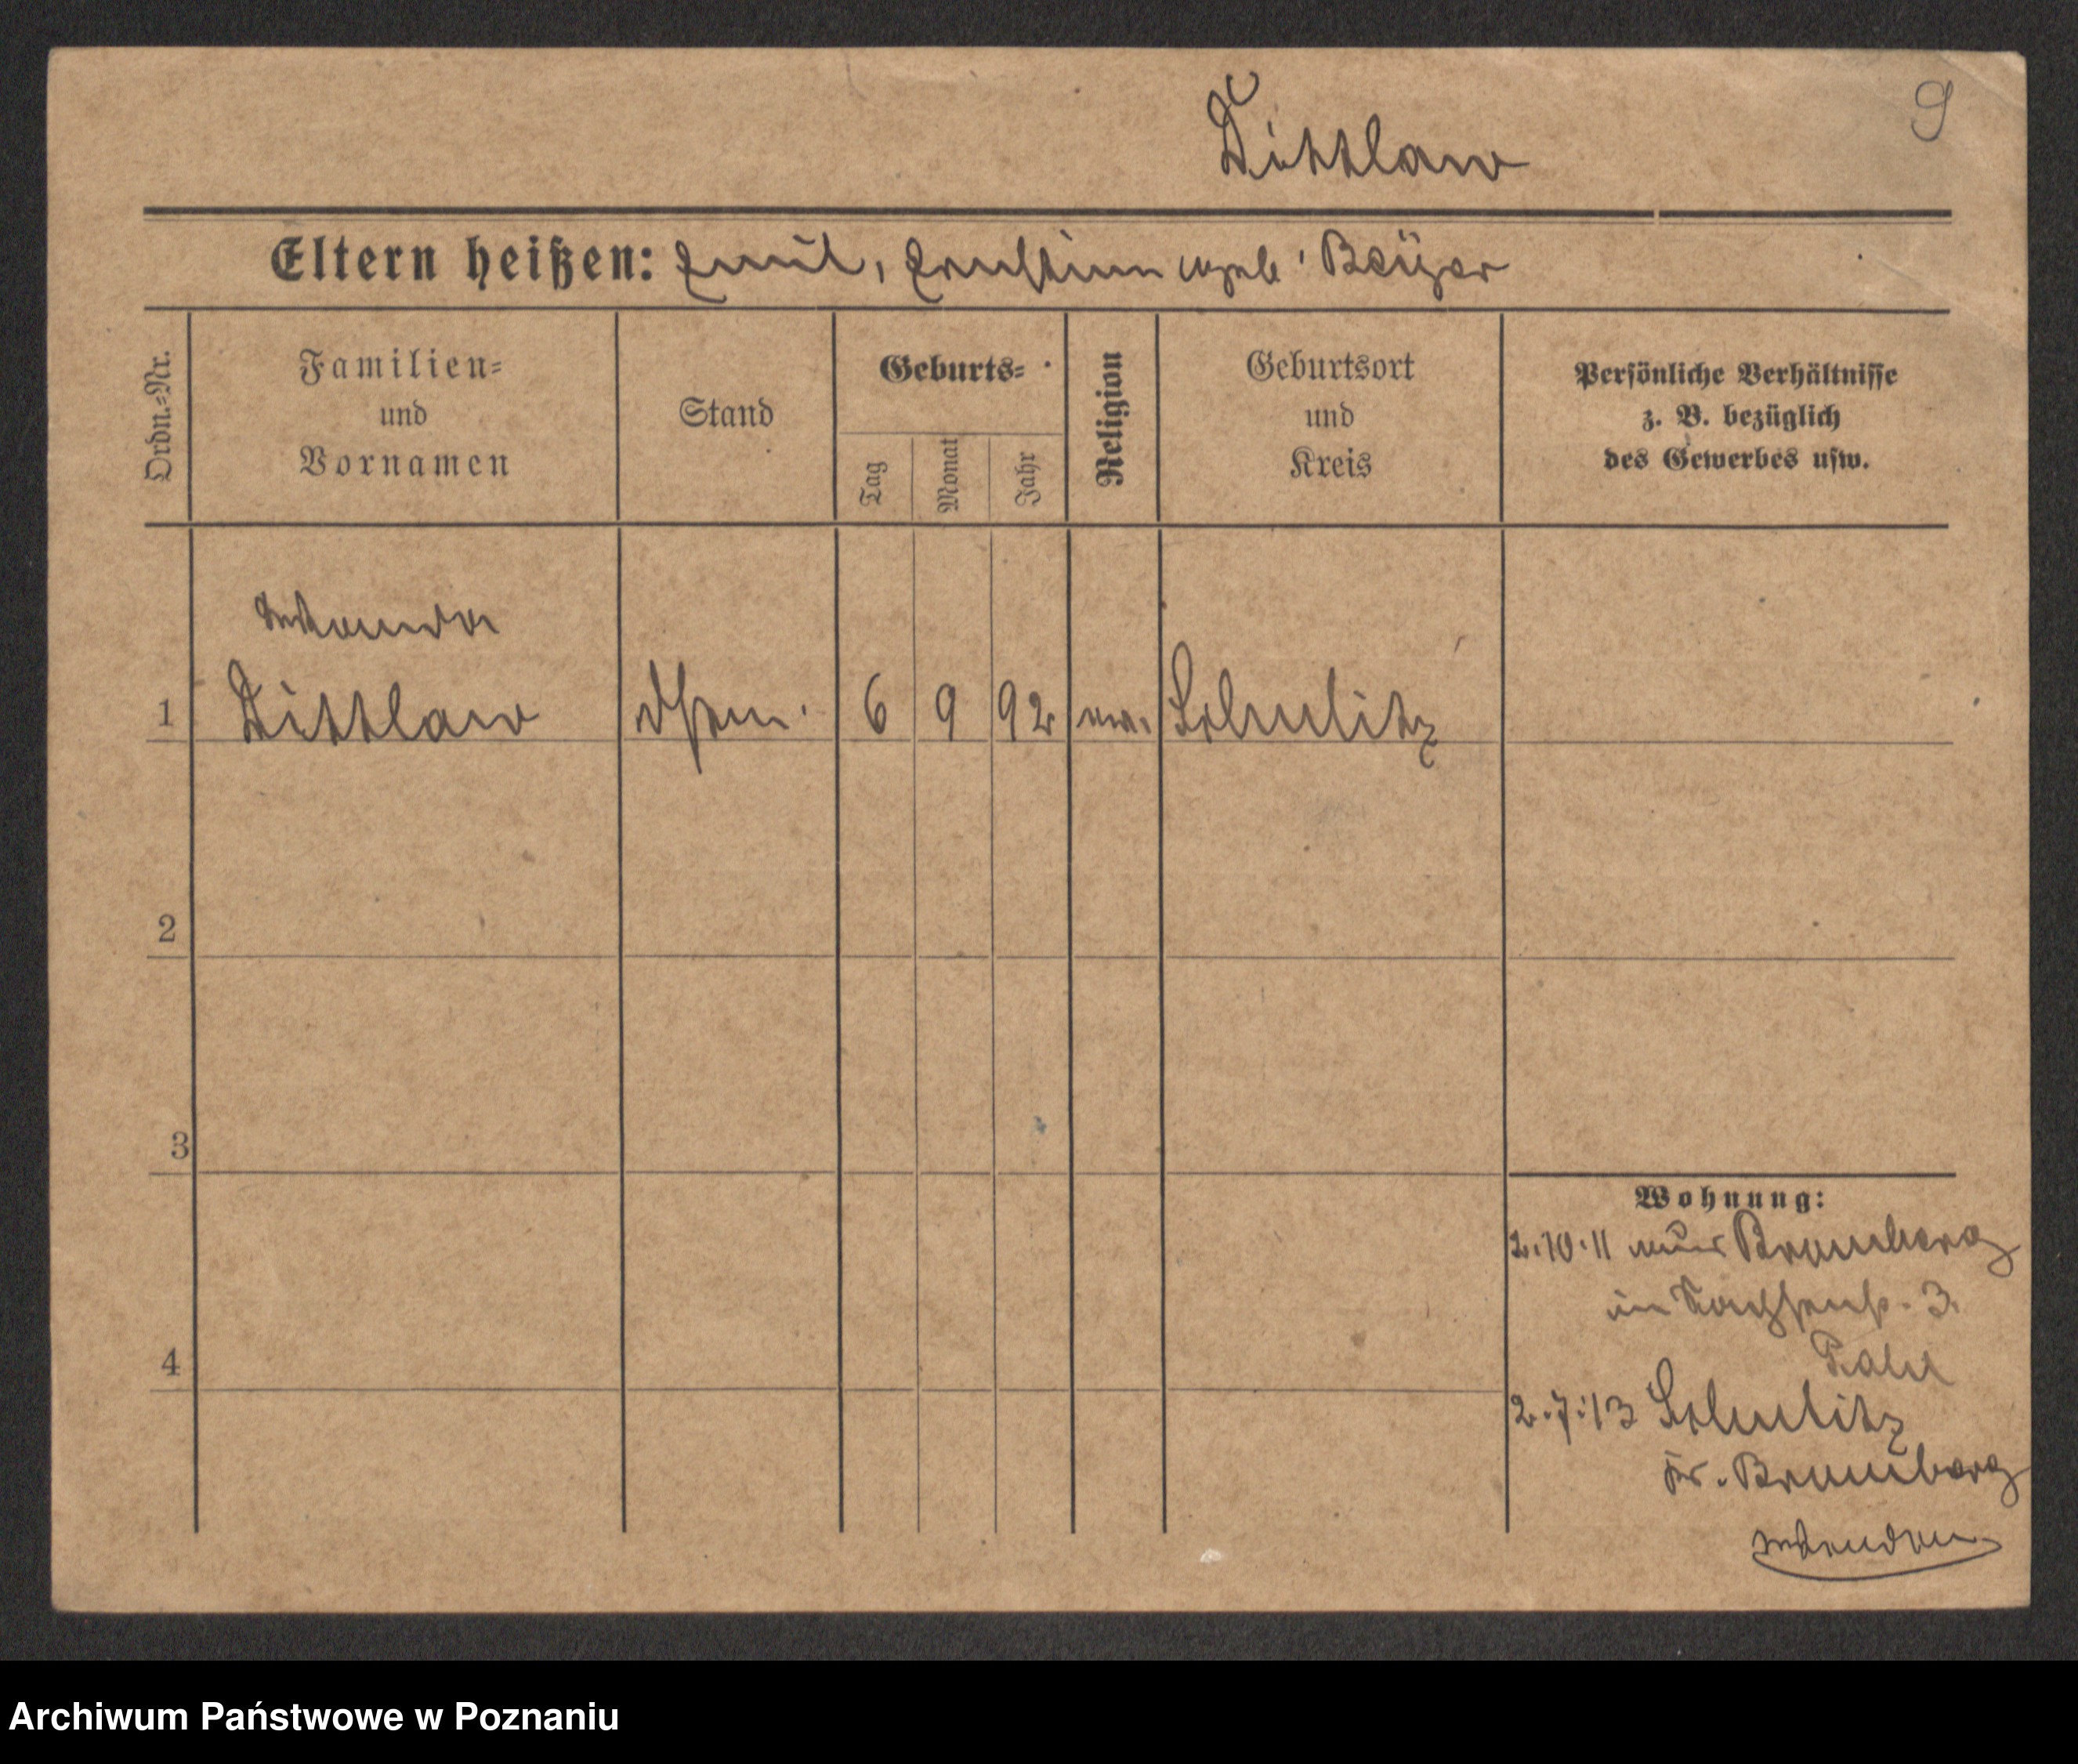 9
Dittlaw
Eltern heißen: Emil, Ernstine geb. Beÿer
Ordn.=Nr.
Familien=
und
Vornamen
Stand
Geburts=
Tag
Monat
Jahr
Religion
Geburtsort
und
Kreis
Persönliche Verhältnisse
z. B. bezüglich
des Gewerbes usw.
Wanda
1 Dittlaw 6 9 92 ev. Schulitz
2
3
4
Wohnung:
2.10.11 Bromberg
3.
2.7.13 Schulitz
Kr. Bromberg
Archiwum Państwowe w Poznaniu